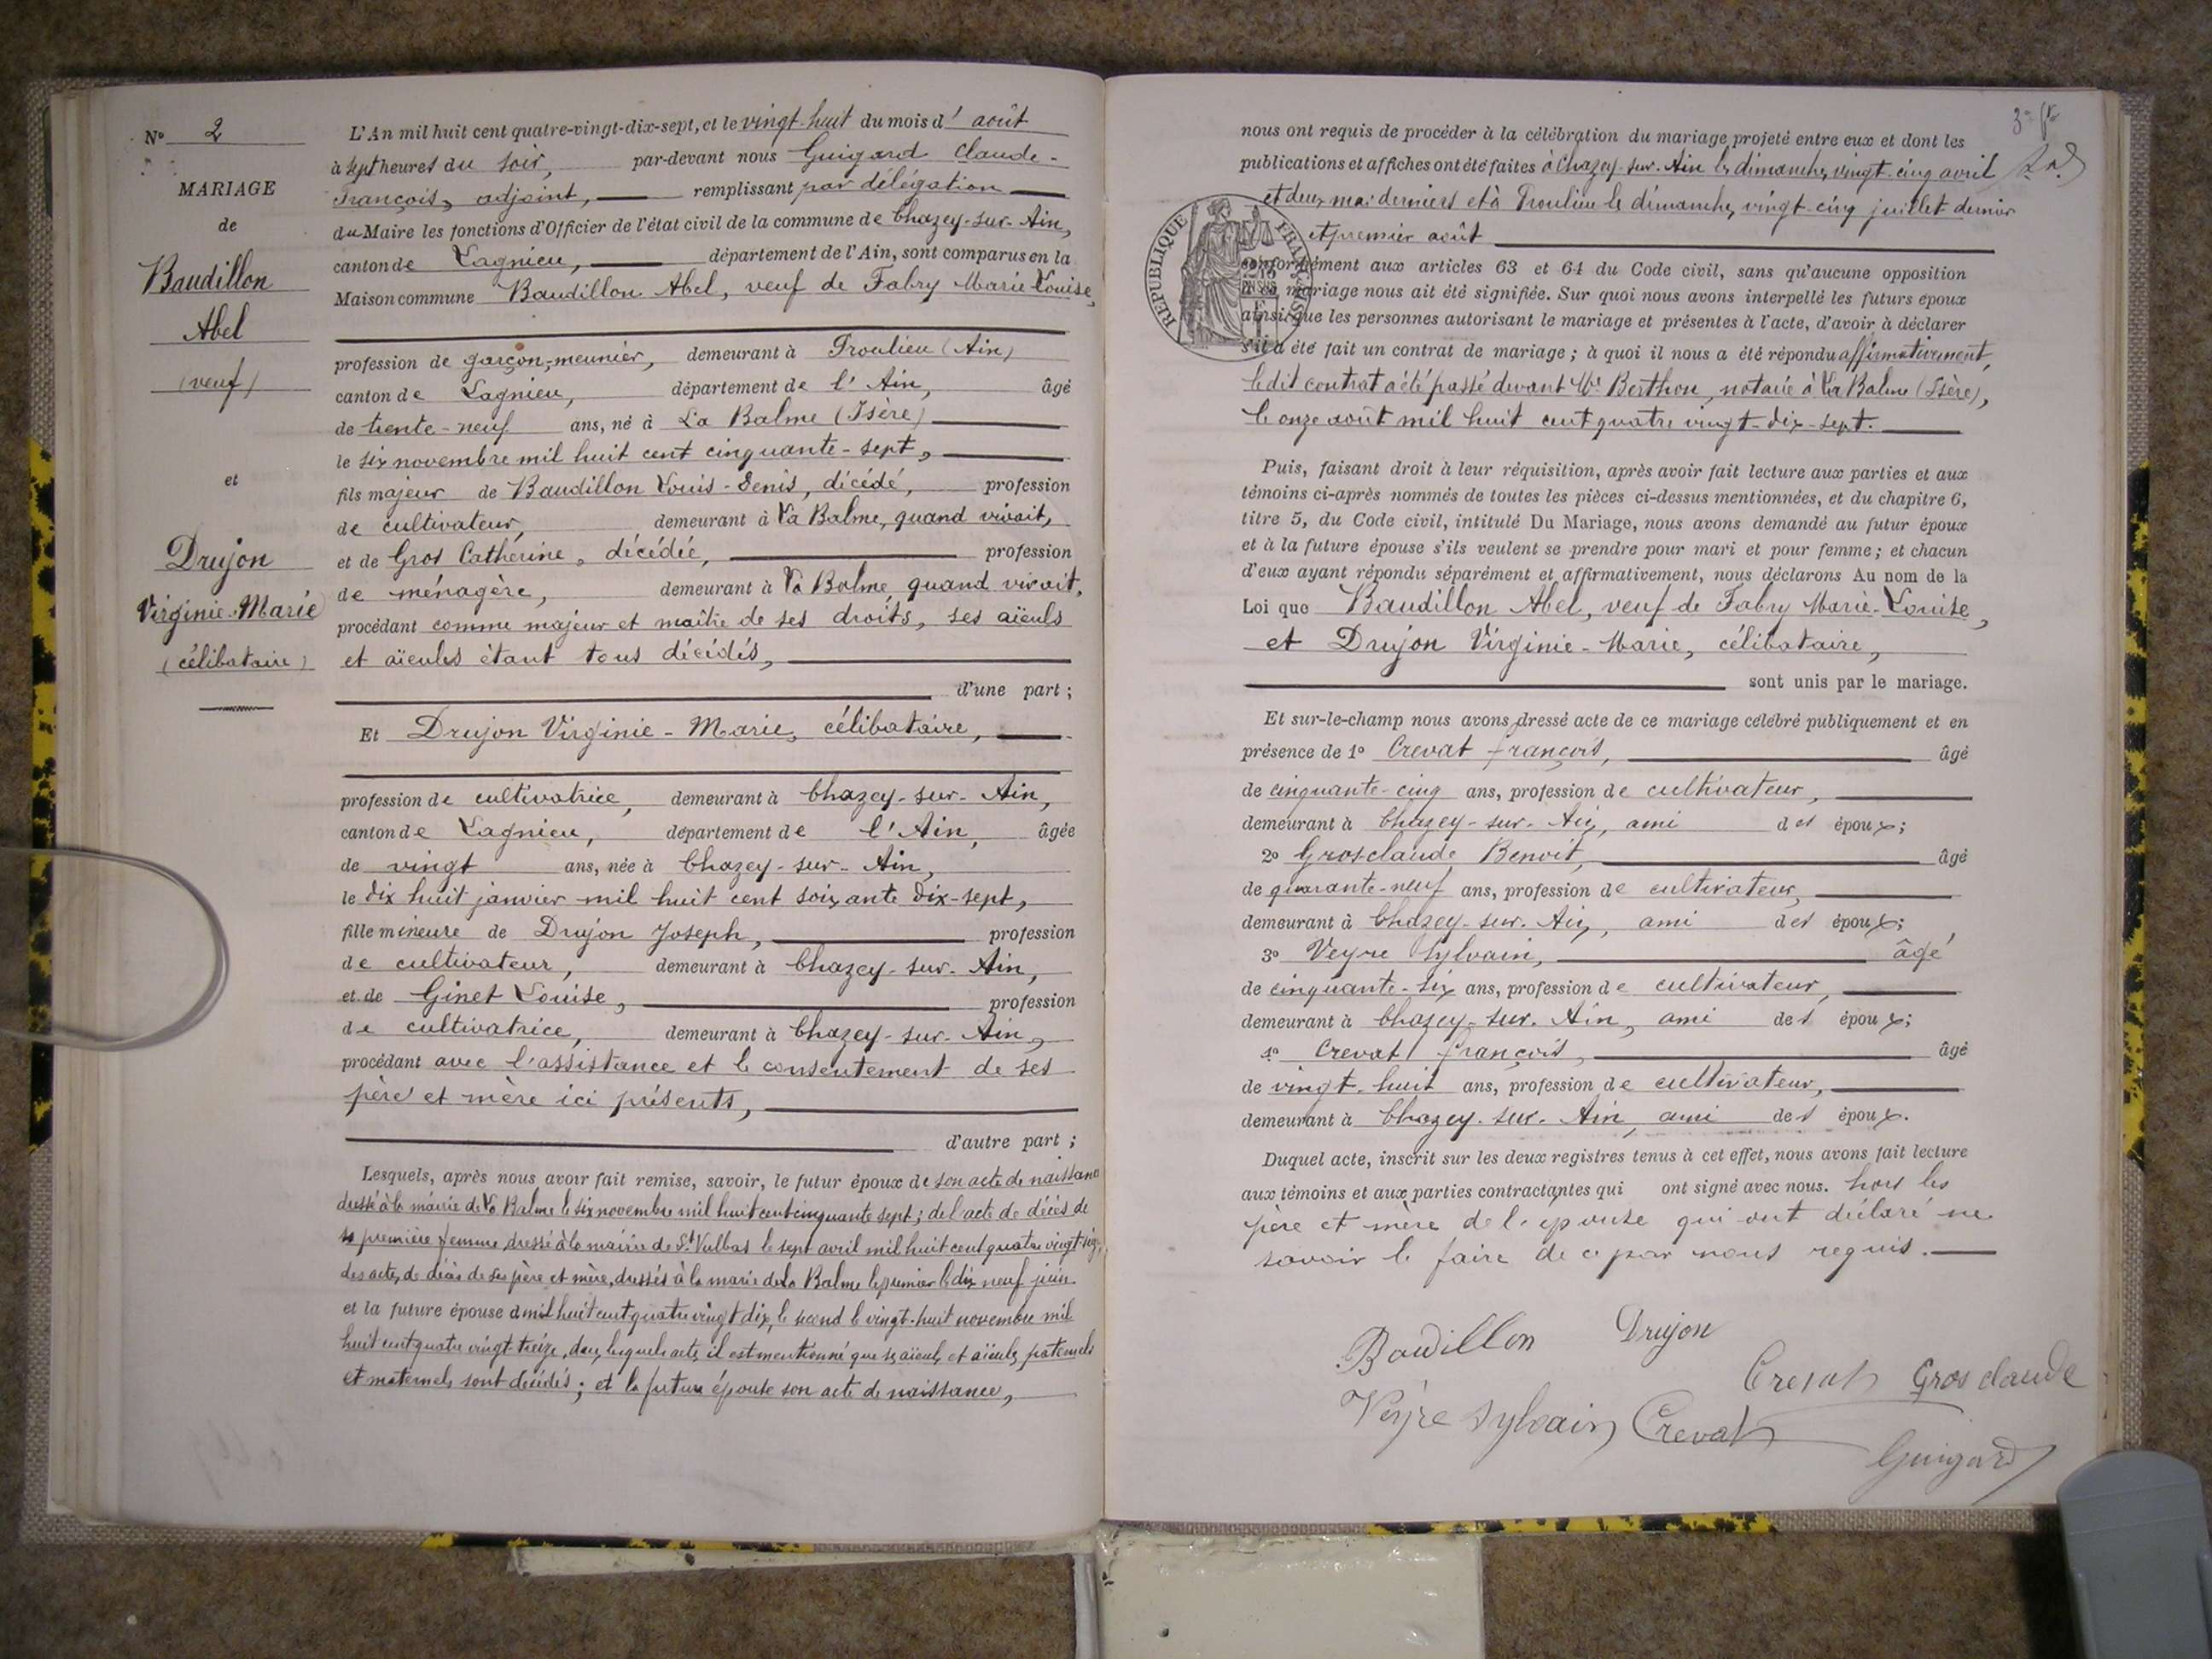 N° 2
MARIAGE
de
Baudillon
Abel
(veuf)
et
Drujon
Virginie-Marie
(célibataire)
L'An mil huit cent quatre-vingt-dix-sept, et le vingt-huit du mois d'août
à sept heures du soir, par-devant nous Guigard Claude-
François, adjoint, remplissant par délégation
du Maire les fonctions d'Officier de l'état civil de la commune de Chazey-sur-Ain,
canton de Lagnieu, département de l'Ain, sont comparus en la
Maison commune Baudillon Abel, veuf de Fabry Marie-Louise,
profession de garçon-meunier, demeurant à Proulieu (Ain)
canton de Lagnieu, département de l'Ain, âgé
de trente-neuf ans, né à La Balme (Isère)
le six novembre mil huit cent cinquante-sept,
fils majeur de Baudillon Louis-Denis, décédé, profession
de cultivateur, demeurant à La Balme, quand vivait,
et de Gros Cathérine, décédée, profession
de ménagère, demeurant à La Balme, quand vivait,
procédant comme majeur et maître de ses droits, ses aïeuls
et aïeules étant tous décédés,
d'une part ;
Et Drujon Virginie-Marie, célibataire,
profession de cultivatrice, demeurant à Chazey-sur-Ain,
canton de Lagnieu, département de l'Ain, âgée
de vingt ans, née à Chazey-sur-Ain,
le dix huit janvier mil huit cent soixante dix-sept,
fille mineure de Drujon Joseph, profession
de cultivateur, demeurant à Chazey-sur-Ain,
et de Ginet Louise, profession
de cultivatrice, demeurant à Chazey-sur-Ain,
procédant avec l'assistance et le consentement de ses
père et mère ici présents,
d'autre part ;
Lesquels, après nous avoir fait remise, savoir, le futur époux de son acte de naissance
dressé à la mairie de La Balme le six novembre mil huit cent cinquante sept ; de l'acte de décès de
sa première femme, dressé à la mairie de St Vulbas le sept avril mil huit cent quatre vingt
des actes de décès de ses père et mère, dressés à la mairie de La Balme le premier le dix neuf juin
et la future épouse d mil huit cent quatre vingt dix, le second le vingt-huit novembre mil
huit cent quatre vingt treize, dans lesquels actes il est mentionné que ses aïeuls et aïeules paternels
et maternels sont décédés ; et la future épouse son acte de naissance,
nous ont requis de procéder à la célébration du mariage projeté entre eux et dont les
publications et affiches ont été faites à Chazey-sur-Ain les dimanches vingt-cinq avril
et deux mai derniers et à Proulieu le dimanche, vingt-cinq juillet dernier
et premier août
RÉPUBLIQUE FRANÇAISE
conformément aux articles 63 et 64 du Code civil, sans qu'aucune opposition
à ce mariage nous ait été signifiée. Sur quoi nous avons interpellé les futurs époux
ainsi que les personnes autorisant le mariage et présentes à l'acte, d'avoir à déclarer
s'il a été fait un contrat de mariage ; à quoi il nous a été répondu affirmativement,
le dit contrat a été passé devant Me Berthon, notaire à La Balme (Isère),
le onze août mil huit cent quatre vingt-dix-sept.
Puis, faisant droit à leur réquisition, après avoir fait lecture aux parties et aux
témoins ci-après nommés de toutes les pièces ci-dessus mentionnées, et du chapitre 6,
titre 5, du Code civil, intitulé Du Mariage, nous avons demandé au futur époux
et à la future épouse s'ils veulent se prendre pour mari et pour femme ; et chacun
d'eux ayant répondu séparément et affirmativement, nous déclarons Au nom de la
Loi que Baudillon Abel, veuf de Fabry Marie-Louise,
et Drujon Virginie-Marie, célibataire,
sont unis par le mariage.
Et sur-le-champ nous avons dressé acte de ce mariage célébré publiquement et en
présence de 1° Crevat françois, âgé
de cinquante-cinq ans, profession de cultivateur,
demeurant à Chazey-sur-Ain, ami des époux ;
2° Grosclaude Benoit, âgé
de quarante-neuf ans, profession de cultivateur,
demeurant à Chazey-sur-Ain, ami des époux ;
3° Veyre Sylvain, âgé
de cinquante-six ans, profession de cultivateur,
demeurant à Chazey-sur-Ain, ami des époux ;
4° Crevat françois, âgé
de vingt-huit ans, profession de cultivateur,
demeurant à Chazey-sur-Ain, ami des époux.
Duquel acte, inscrit sur les deux registres tenus à cet effet, nous avons fait lecture
aux témoins et aux parties contractantes qui ont signé avec nous. hors les
père et mère de l'épouse qui ont déclaré ne
savoir le faire de ce par nous requis.
Baudillon Drujon
Crevat Grosclaude
Veyre Sylvain Crevat
Guigard